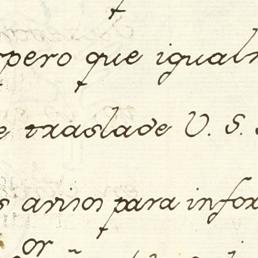 spero que igualm
e traslade V. S.
s avisos para infor
or